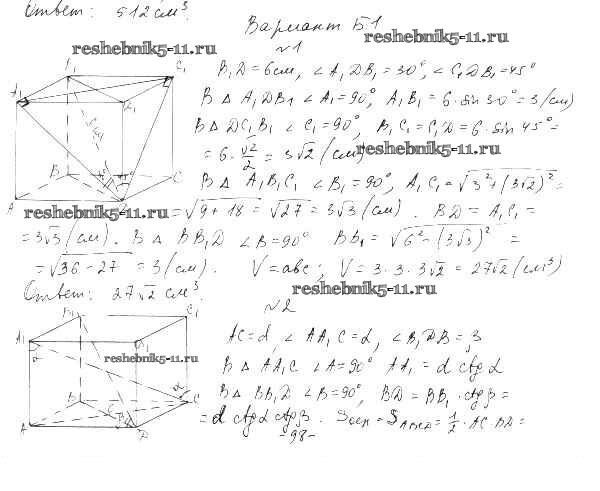 Ответ: 512 см³.
Вариант Б1
reshebnik5-11.ru
reshebnik5-11.ru
№1
B₁D = 6см, ∠A₁DB₁ = 30°, ∠C₁DB₁ = 45°
В △ A₁DB₁ ∠A₁ = 90°, A₁B₁ = 6·sin 30° = 3(см)
В △ DC₁B₁ ∠C₁ = 90°, B₁C₁ = C₁D = 6·sin 45° =
= 6·√2/2 = 3√2 (см)
reshebnik5-11.ru
В △ A₁B₁C₁ ∠B₁ = 90°, A₁C₁ = √(3² + (3√2)²) =
reshebnik5-11.ru
= √(9 + 18) = √27 = 3√3 (см). BD = A₁C₁ =
= 3√3 (см). В △ BB₁D ∠B = 90° BB₁ = √(6² − (3√3)²) =
= √(36 − 27) = 3(см). V = abc; V = 3·3·3√2 = 27√2 (см³)
Ответ: 27√2 см³.
reshebnik5-11.ru
№2
AC = d, ∠AA₁C = α, ∠B₁DB = β
reshebnik5-11.ru
В △ AA₁C ∠A = 90° AA₁ = d ctg α
В △ BB₁D ∠B = 90°, BD = BB₁·ctg β =
= d ctg α ctg β. Sосн = SABCD = 1/2·AC·BD =
-98-